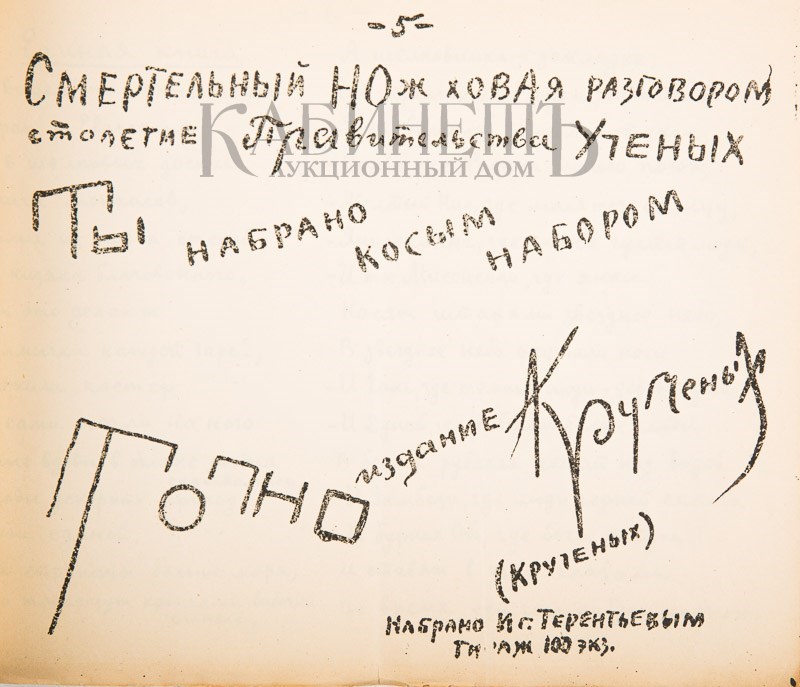 -5-
СМЕРТЕЛЬНЫЙ НОЖ ХОВАЯ РАЗГОВОРОМ
СТОЛЕТИЕ Правительства УЧЕНЫХ
КАБИНЕТЪ
АУКЦИОННЫЙ ДОМ
ТЫ НАБРАНО КОСЫМ НАБОРОМ
издание КРУЧЕНЫХ
(КРУЧЕНЫХ)
НАБРАНО Иг. ТЕРЕНТЬЕВЫМ
ТИРАЖ 100 экз.